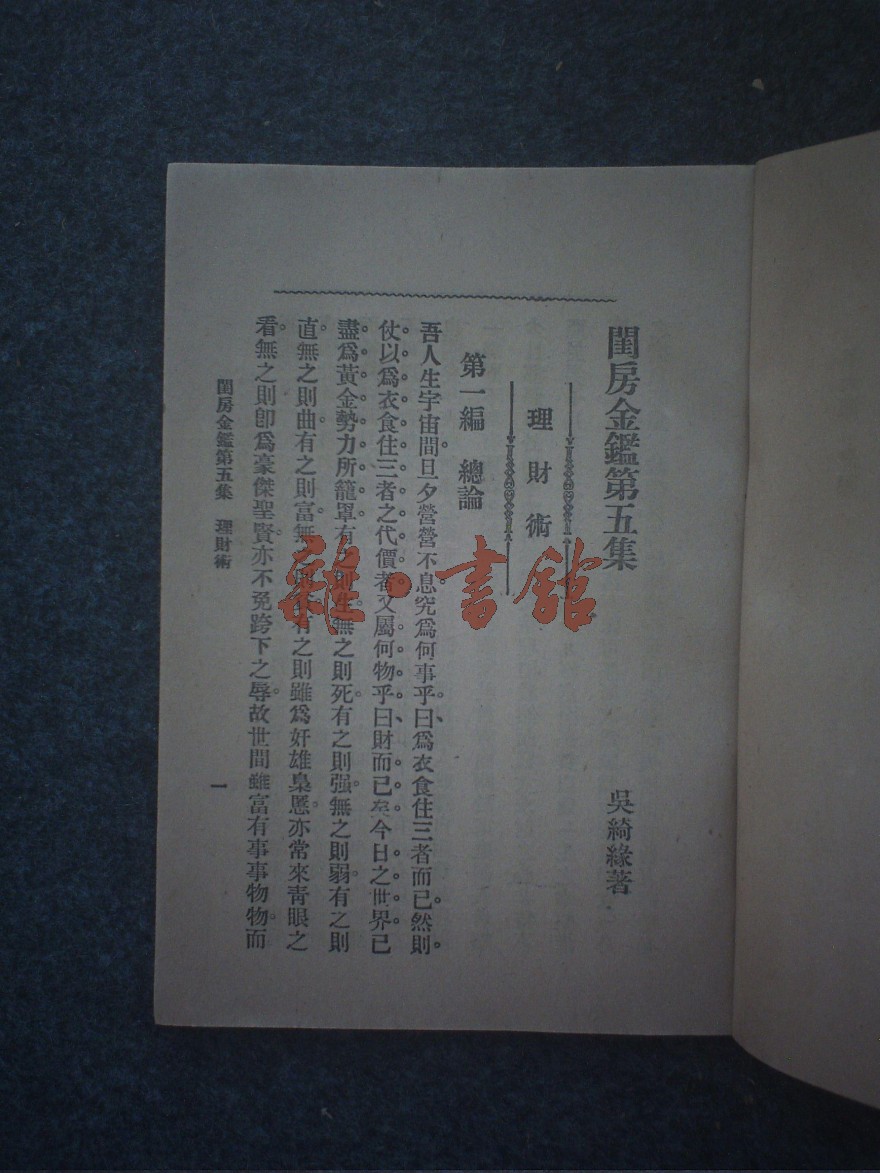 閨房金鑑第五集
吳綺緣著
理財術
第一編 總論
吾人生宇宙間。旦夕營營不息。究爲何事乎。曰、爲衣食住三者而已。然則。
仗以爲衣食住三者之代價者。又屬何物乎。曰、財而已矣。今日之世界。已
盡爲黃金勢力所籠罩。有之則生。無之則死。有之則强。無之則弱。有之則
直。無之則曲。有之則富。無之則 有之則雖爲奸雄梟慝。亦常來靑眼之
看。無之則卽爲豪傑聖賢。亦不免跨下之辱。故世間雖富有事事物物。而
閨房金鑑第五集 理財術
一
雜·書館